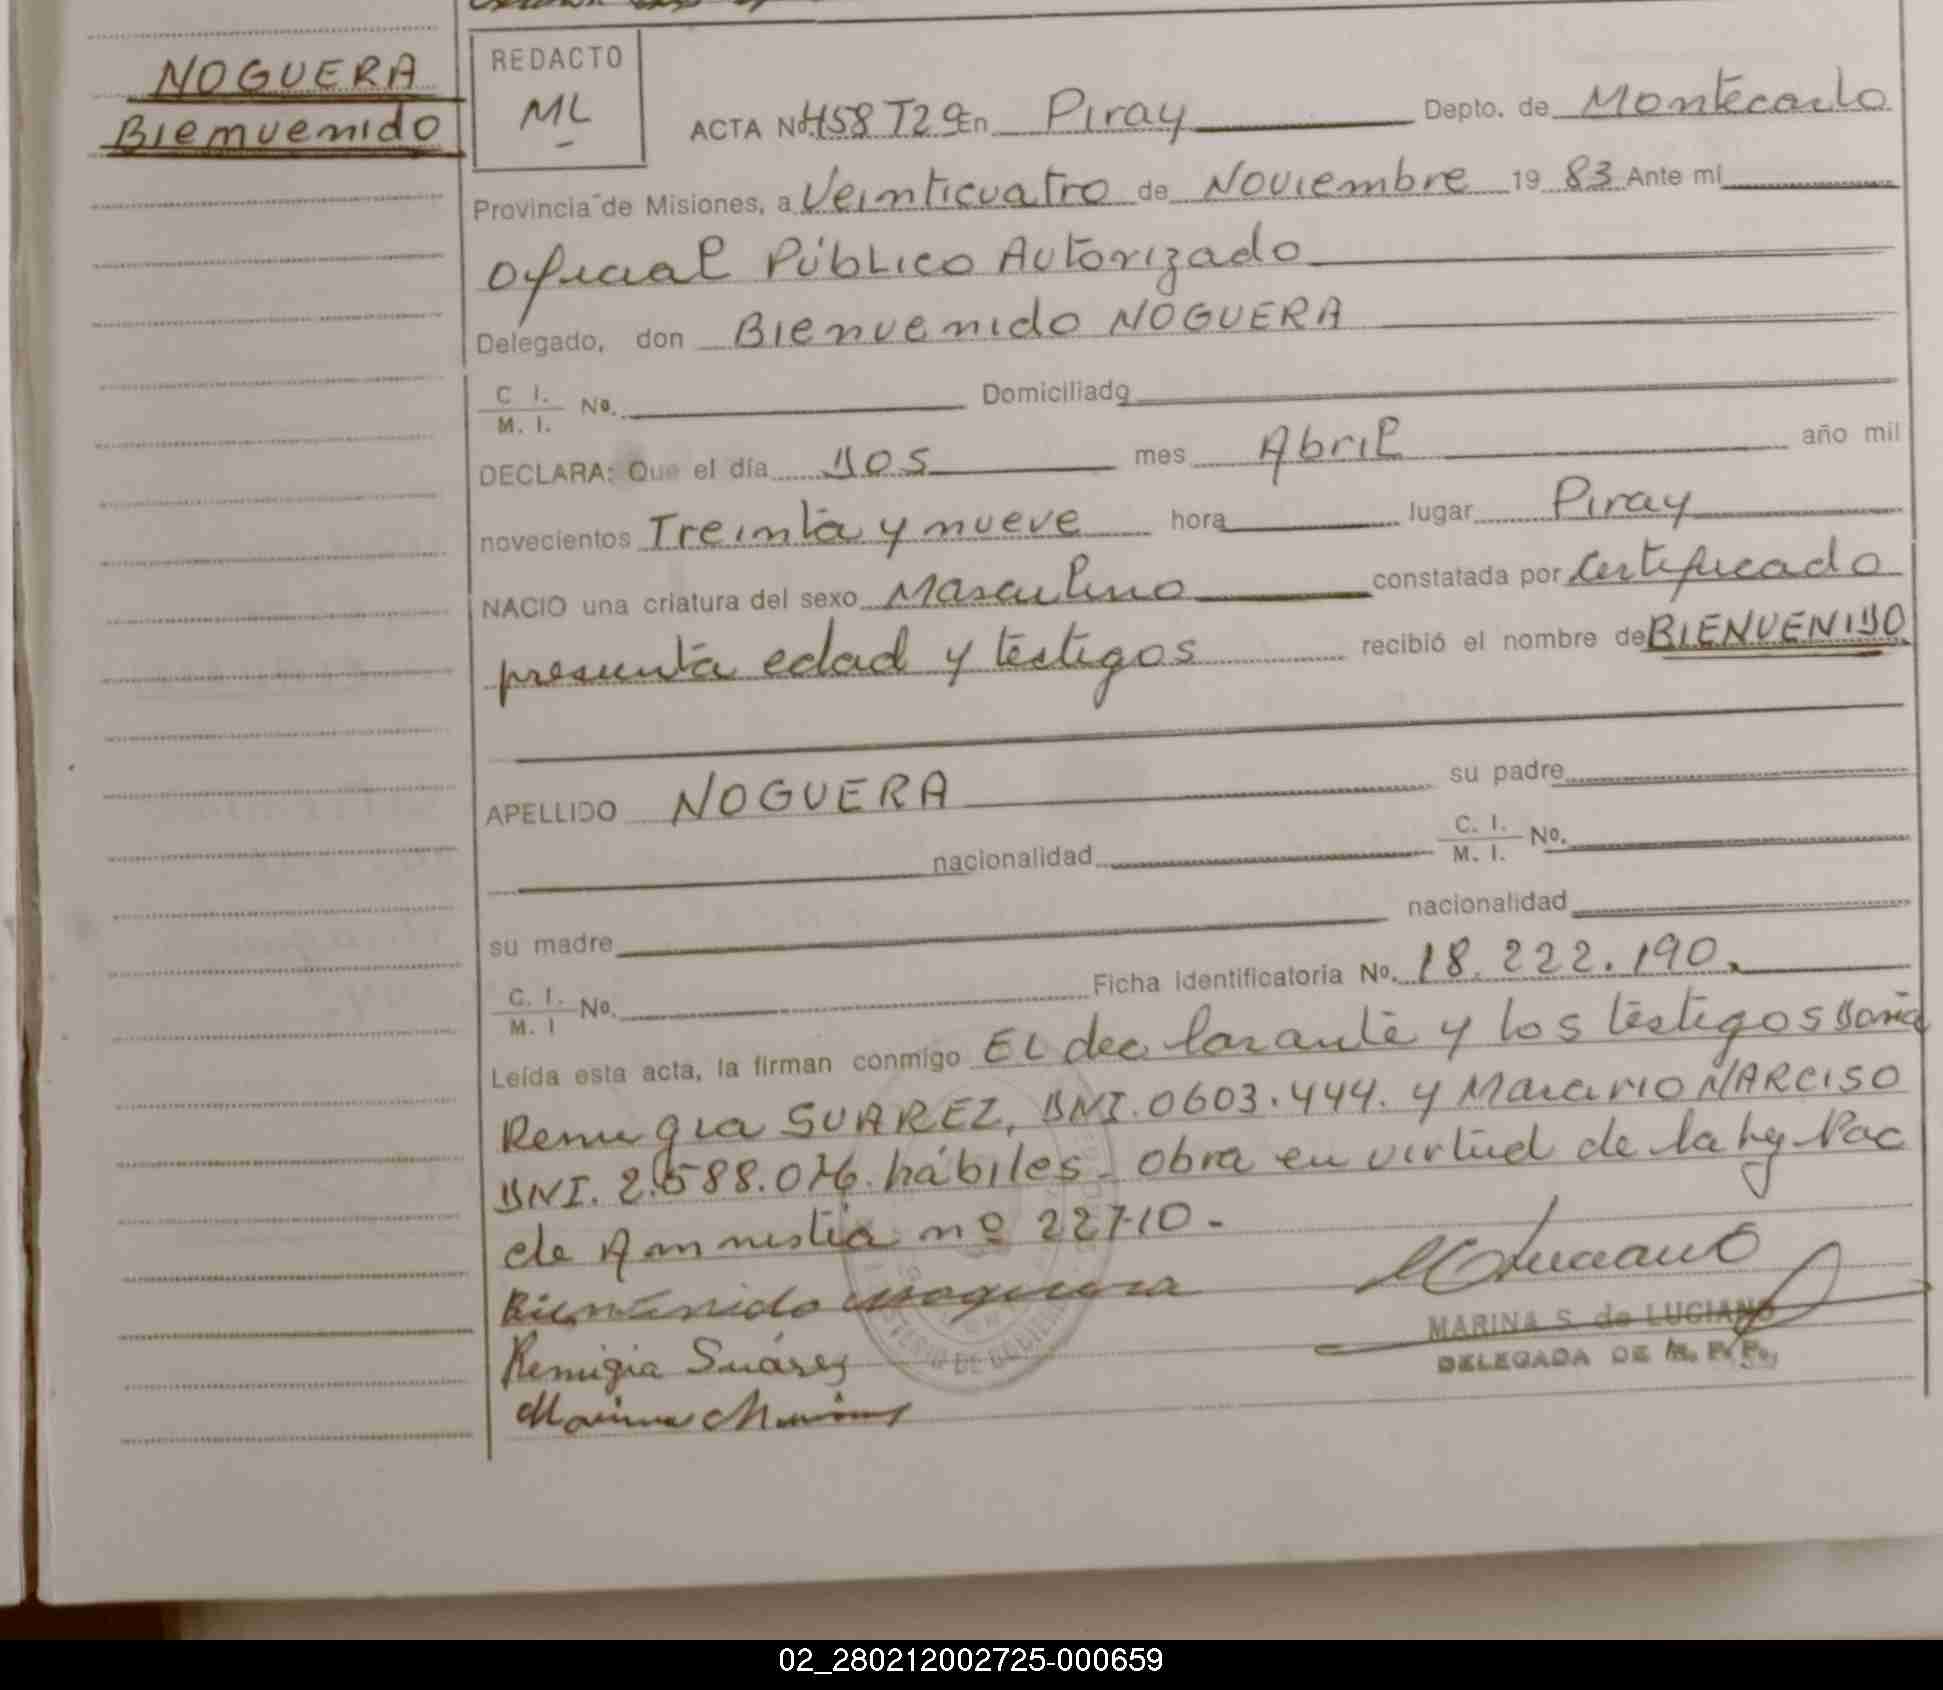 NOGUERA
Bienvenido
REDACTO
ML
ACTA Nº 458 T29 En Piray Depto. de Montecarlo
Provincia de Misiones, a Veinticuatro de Noviembre 19 83 Ante mí
Oficial Público Autorizado
Delegado, don Bienvenido NOGUERA
C. I. / M. I. Nº. Domiciliado
DECLARA: Que el día DOS mes Abril año mil
novecientos Treinta y nueve hora lugar Piray
NACIO una criatura del sexo Masculino constatada por Certificado
presunta edad y testigos recibió el nombre de BIENVENIDO
APELLIDO NOGUERA su padre
nacionalidad C. I. / M. I. Nº.
su madre nacionalidad
C. I. / M. I Nº. Ficha Identificatoria Nº. 18.222.190.
Leída esta acta, la firman conmigo EL declarante y los testigos Doña
Remigia SUAREZ, DNI. 0603.444. y Macario NARCISO
DNI. 2.588.076. hábiles - obra en virtud de la ley Nac
de Amnistia nº 22710.-
Bienvenido Noguera
Remigia Suárez
MARINA S. de LUCIANO
DELEGADA DE
02_280212002725-000659